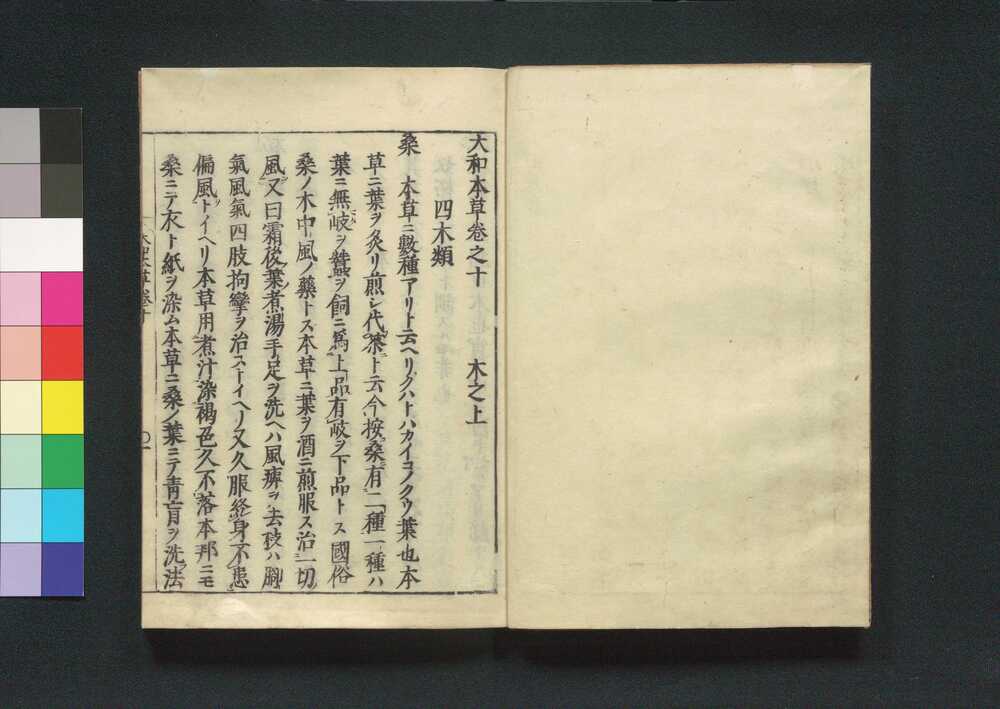 大和本草卷之十　木之上
四木類
桑　本草ニ數種アリト云ヘリクハトハカイコノクウ葉也本
草ニ葉ヲ炙リ煎シ代茶ト云今按桑有二種一種ハ
葉ニ無岐ヲ蠶ヲ飼ニ爲上品有岐ヲ下品トス國俗
桑ノ木中風ノ藥トス本草ニ葉ヲ酒ニ煎服ス治一切
風又曰霜後葉煮湯手足ヲ洗ヘハ風痺ヲ去枝ハ脚
氣風氣四肢拘攣ヲ治ストイヘリ又久服終身不患
偏風トイヘリ本草用煮汁染褐色久不落本邦ニモ
桑ニテ衣ト紙ヲ染ム本草ニ桑ノ葉ニテ青盲ヲ洗法